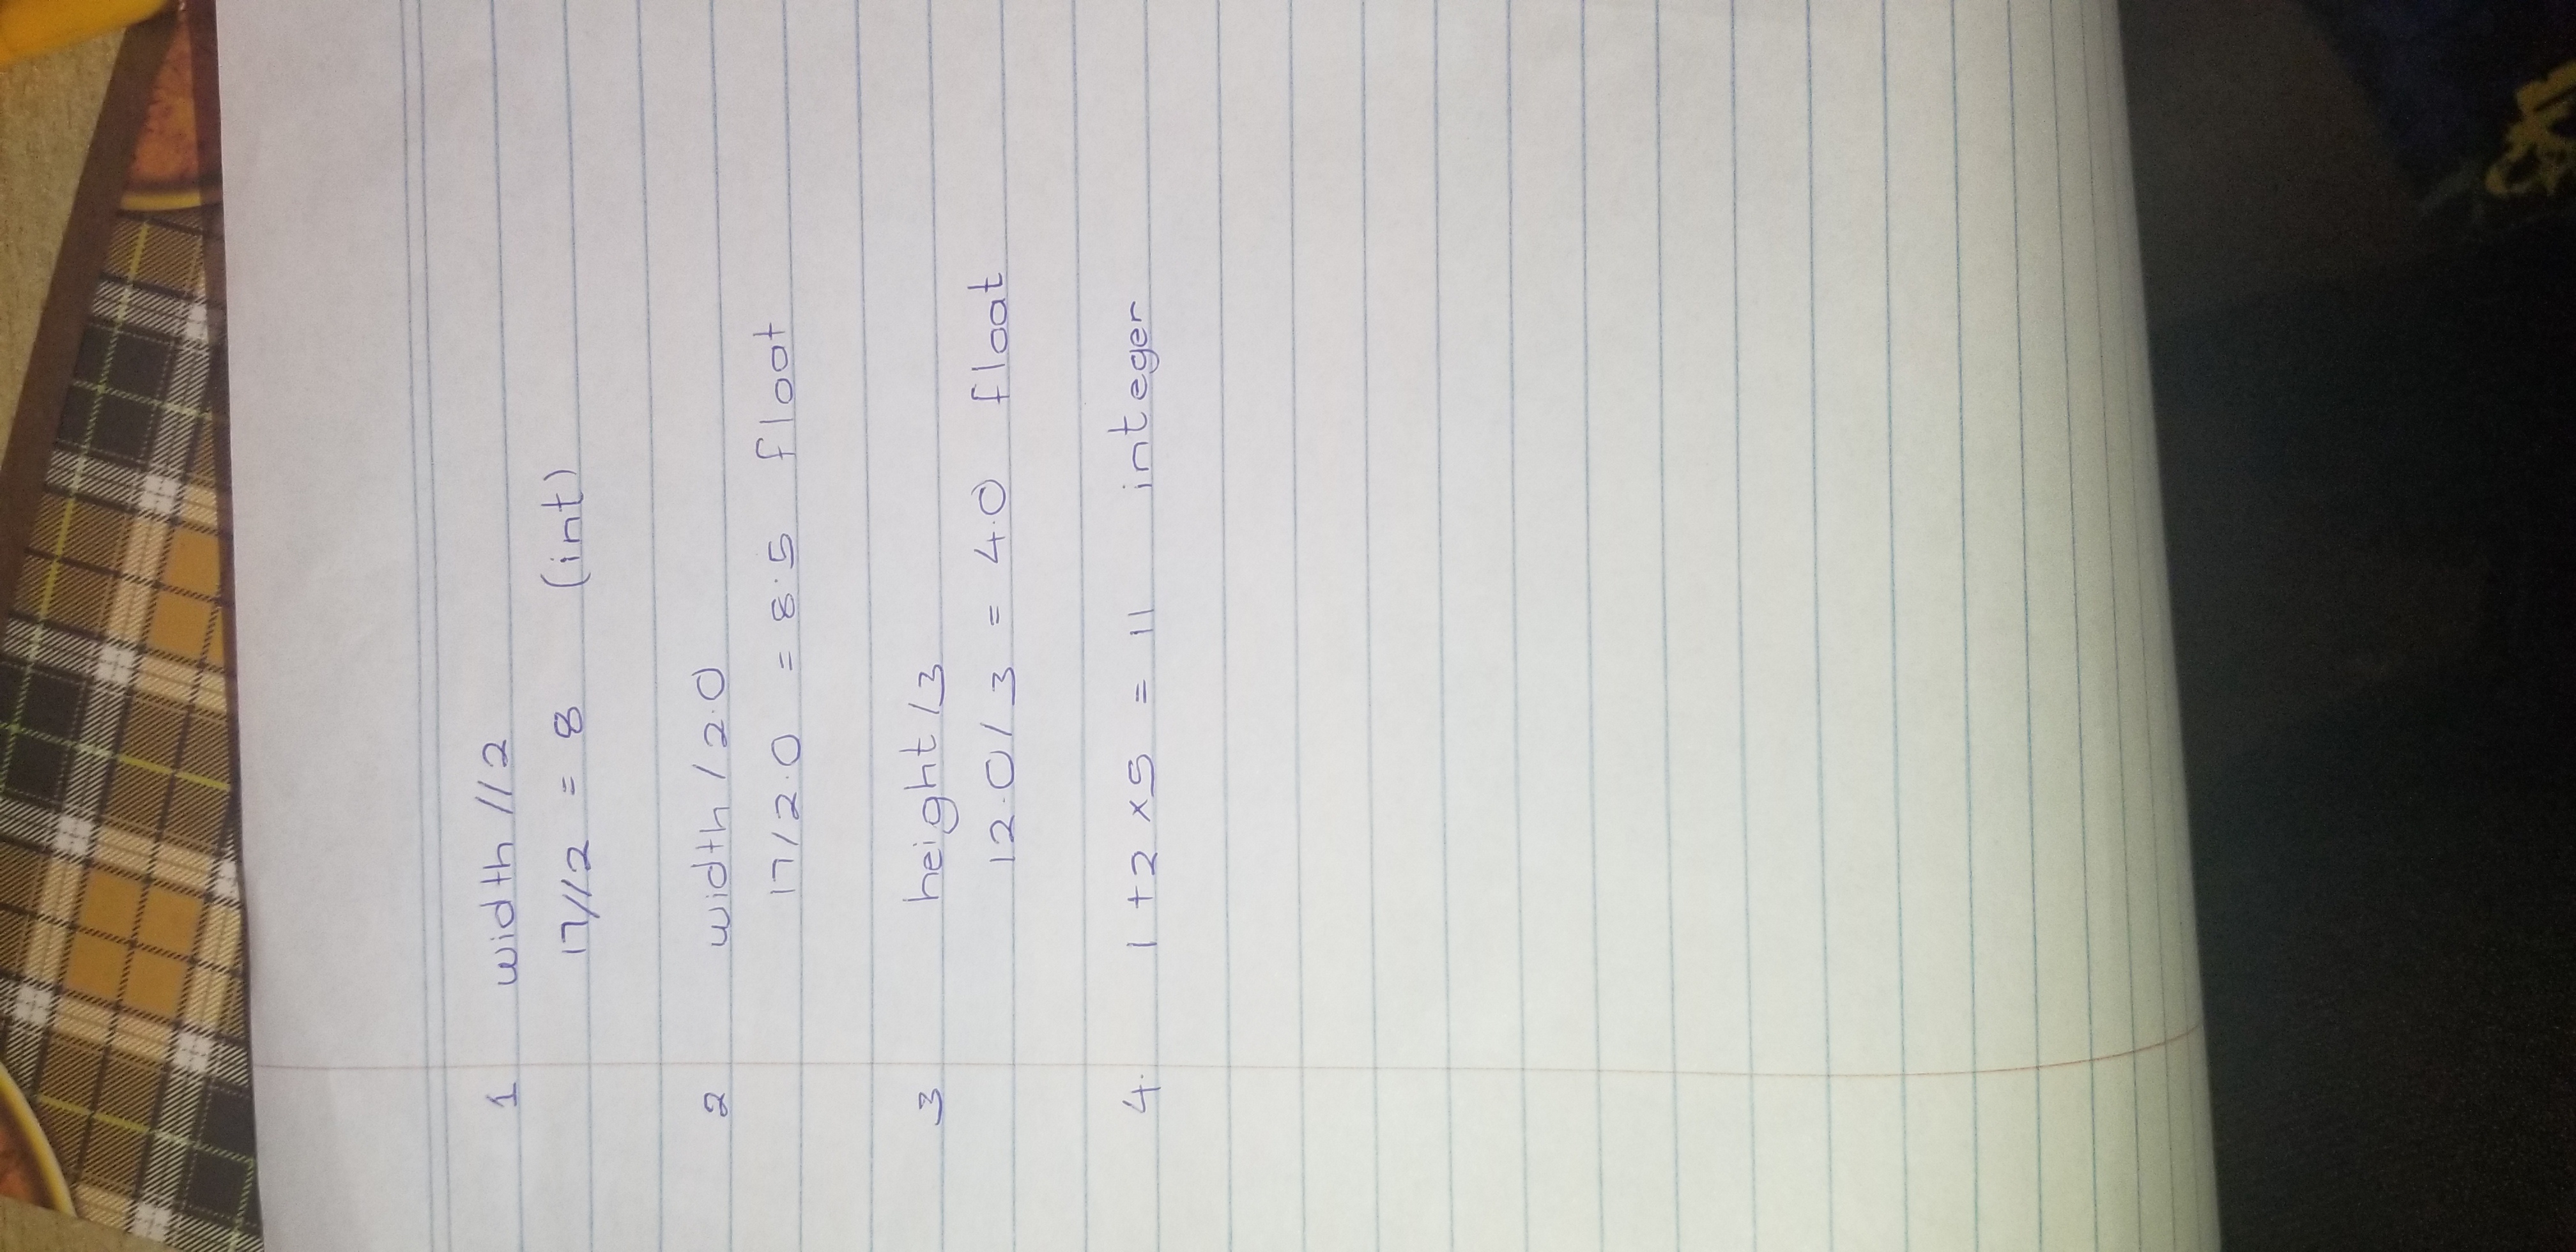 1 width //2
17//2 = 8 (int)
2 width / 2.0
17/2.0 = 8.5 float
3 height /3
12.0/ 3 = 4.0 float
4. 1 +2 ×5 = 11 integer